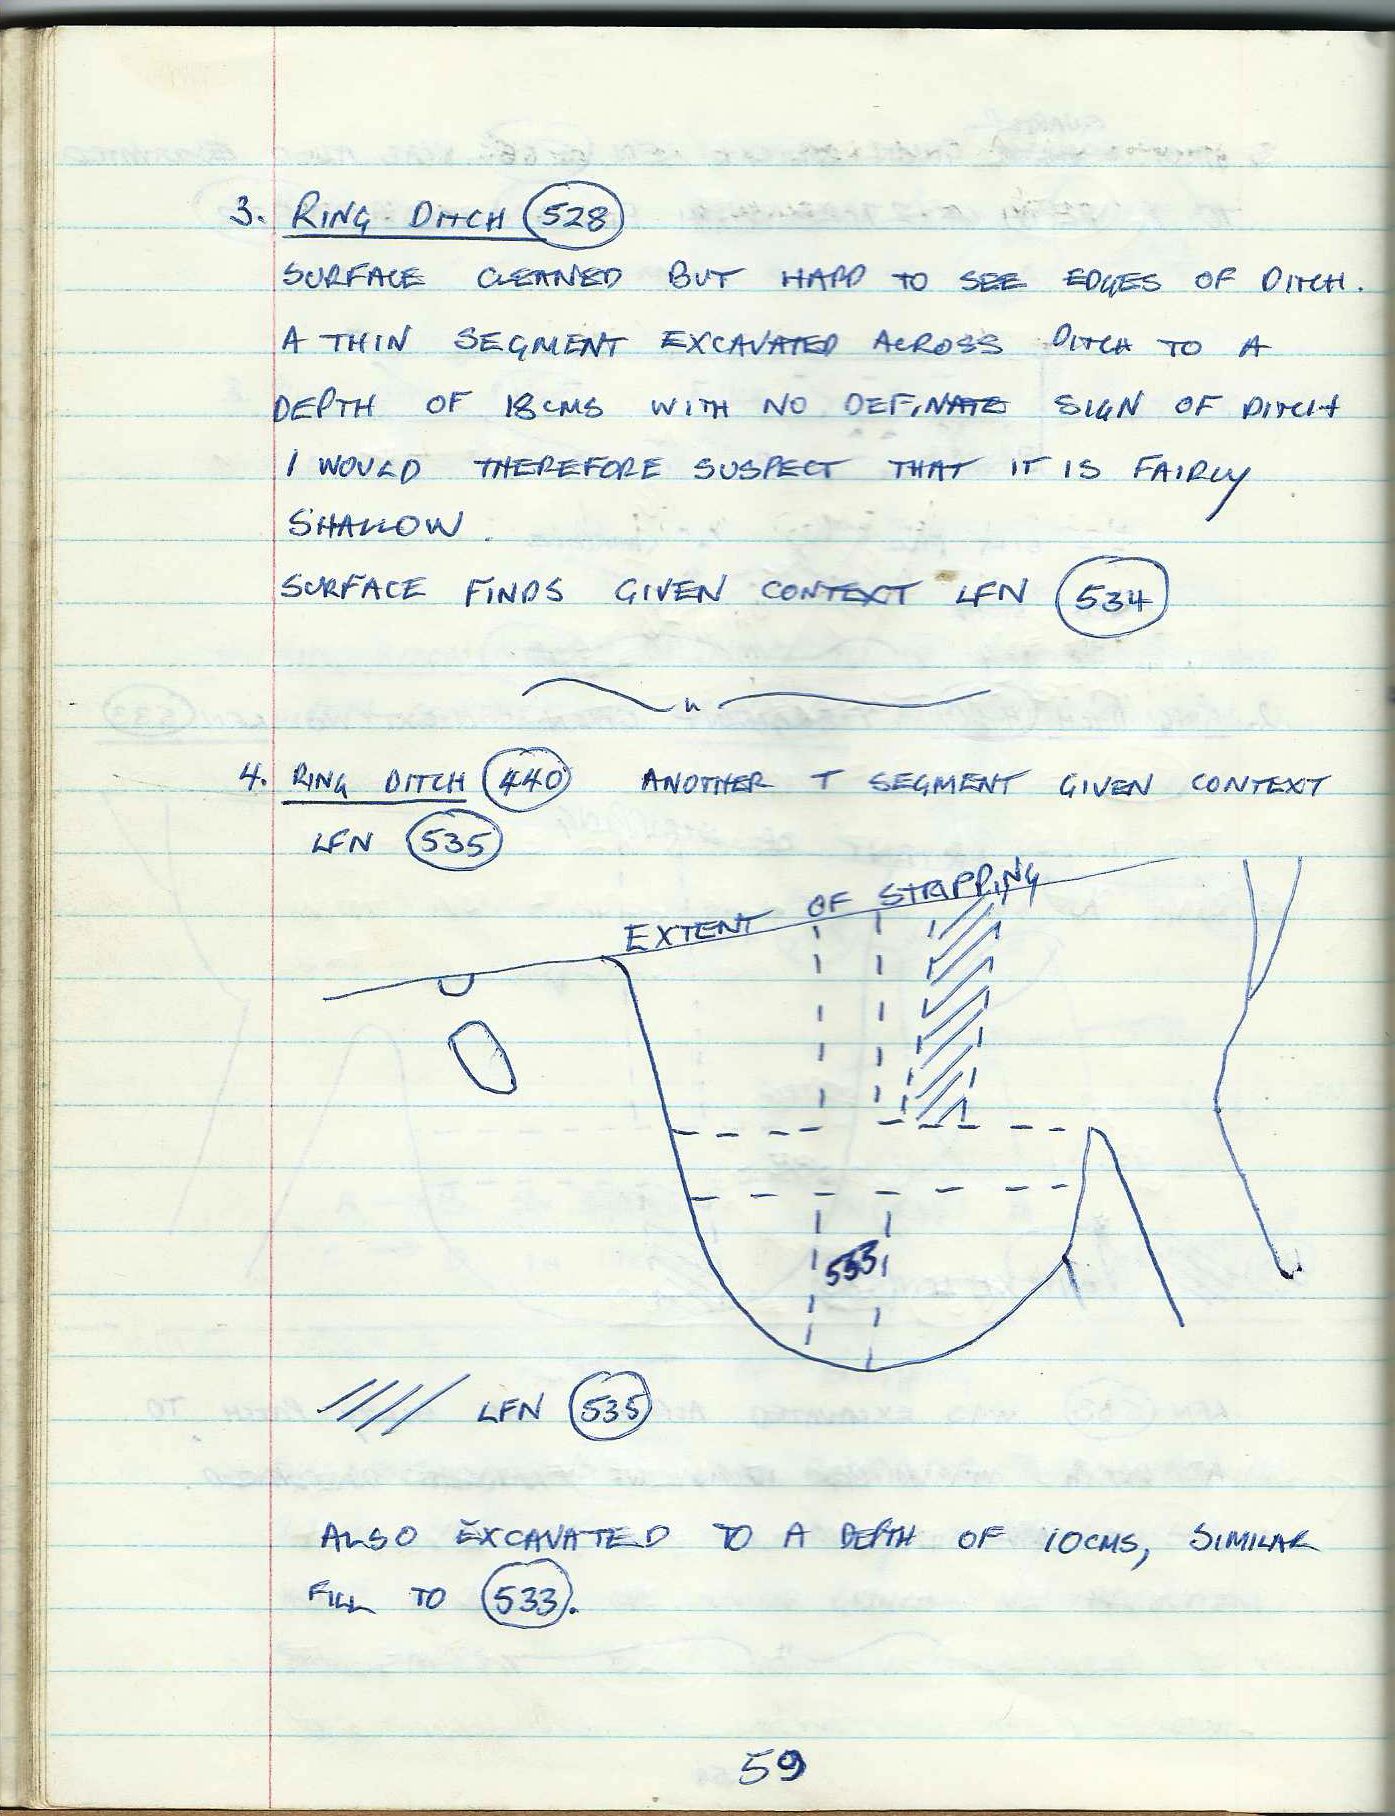 3. RING DITCH 528
SURFACE CLEANED BUT HARD TO SEE EDGES OF DITCH.
A THIN SEGMENT EXCAVATED ACROSS DITCH TO A
DEPTH OF 18CMS WITH NO DEFINATE SIGN OF DITCH
I WOULD THEREFORE SUSPECT THAT IT IS FAIRLY
SHALLOW.
SURFACE FINDS GIVEN CONTEXT LFN 534
4. RING DITCH 440 ANOTHER T SEGMENT GIVEN CONTEXT
LFN 535
EXTENT OF STRIPPING
533
LFN 535
ALSO EXCAVATED TO A DEPTH OF 10CMS, SIMILAR
FILL TO 533.
59